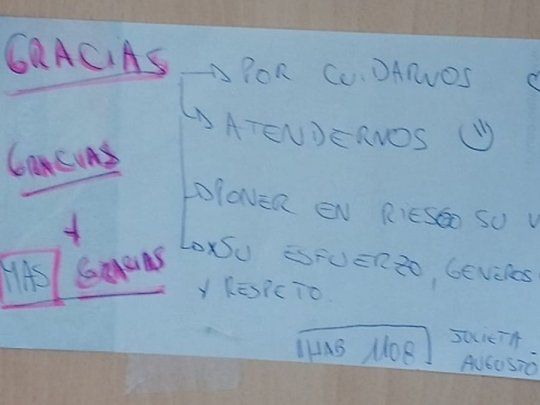 GRACIAS → POR CUIDARNOS
→ ATENDERNOS
GRACIAS
→ PONER EN RIESGO SU
+
MAS GRACIAS → x SU ESFUERZO, GENEROS
Y RESPETO.
HAB 1108 JULIETA
AUGUSTO